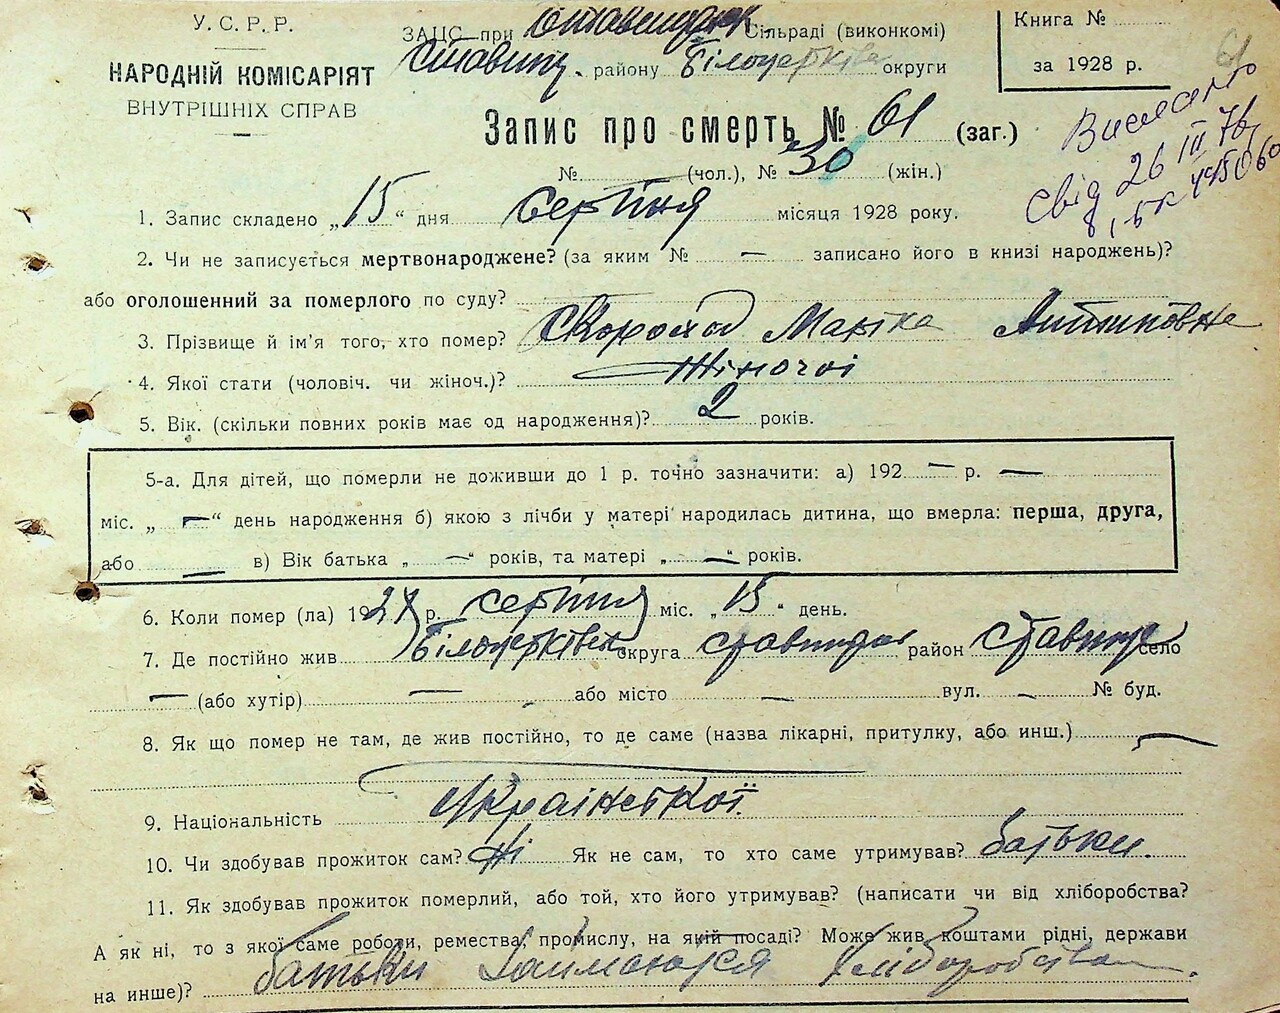 У. С. Р. Р.
НАРОДНІЙ КОМІСАРІЯТ
ВНУТРІШНІХ СПРАВ
ЗАЦС при Ставищан. Сільраді (виконкомі)
Ставищ. району Білоцерків округи
Книга №
за 1928 р.
61
Запис про смерть № 61 (заг.)
№ — (чол.), № 30 (жін.)
Вислано
свід 26 III 76
1. Запис складено „15“ дня серпня місяця 1928 року.
2. Чи не записується мертвонароджене? (за яким № — записано його в книзі народжень)?
або оголошенний за померлого по суду?
3. Прізвище й ім'я того, хто помер? Скороход Антиповна
4. Якої стати (чоловіч. чи жіноч.)? Жіночоі
5. Вік. (скільки повних років має од народження)? 2 років.
5-а. Для дітей, що померли не доживши до 1 р. точно зазначити: а) 192 — р. —
міс. „ — “ день народження б) якою з лічби у матері народилась дитина, що вмерла: перша, друга,
або — в) Вік батька „ — “ років, та матері „ — “ років.
6. Коли помер (ла) 192 р. серпня міс. „15“ день.
7. Де постійно жив Білоцерківск округа Ставищан район Ставище село
— (або хутір) — або місто — вул. — № буд.
8. Як що помер не там, де жив постійно, то де саме (назва лікарні, притулку, або инш.) —
9. Національність Украінської.
10. Чи здобував прожиток сам? Ні Як не сам, то хто саме утримував? батьки.
11. Як здобував прожиток померлий, або той, хто його утримував? (написати чи від хліборобства?
А як ні, то з якої саме роботи, ремества, промислу, на якій посаді? Може жив коштами рідні, держави
на инше)? батьки займаються хліборобством.